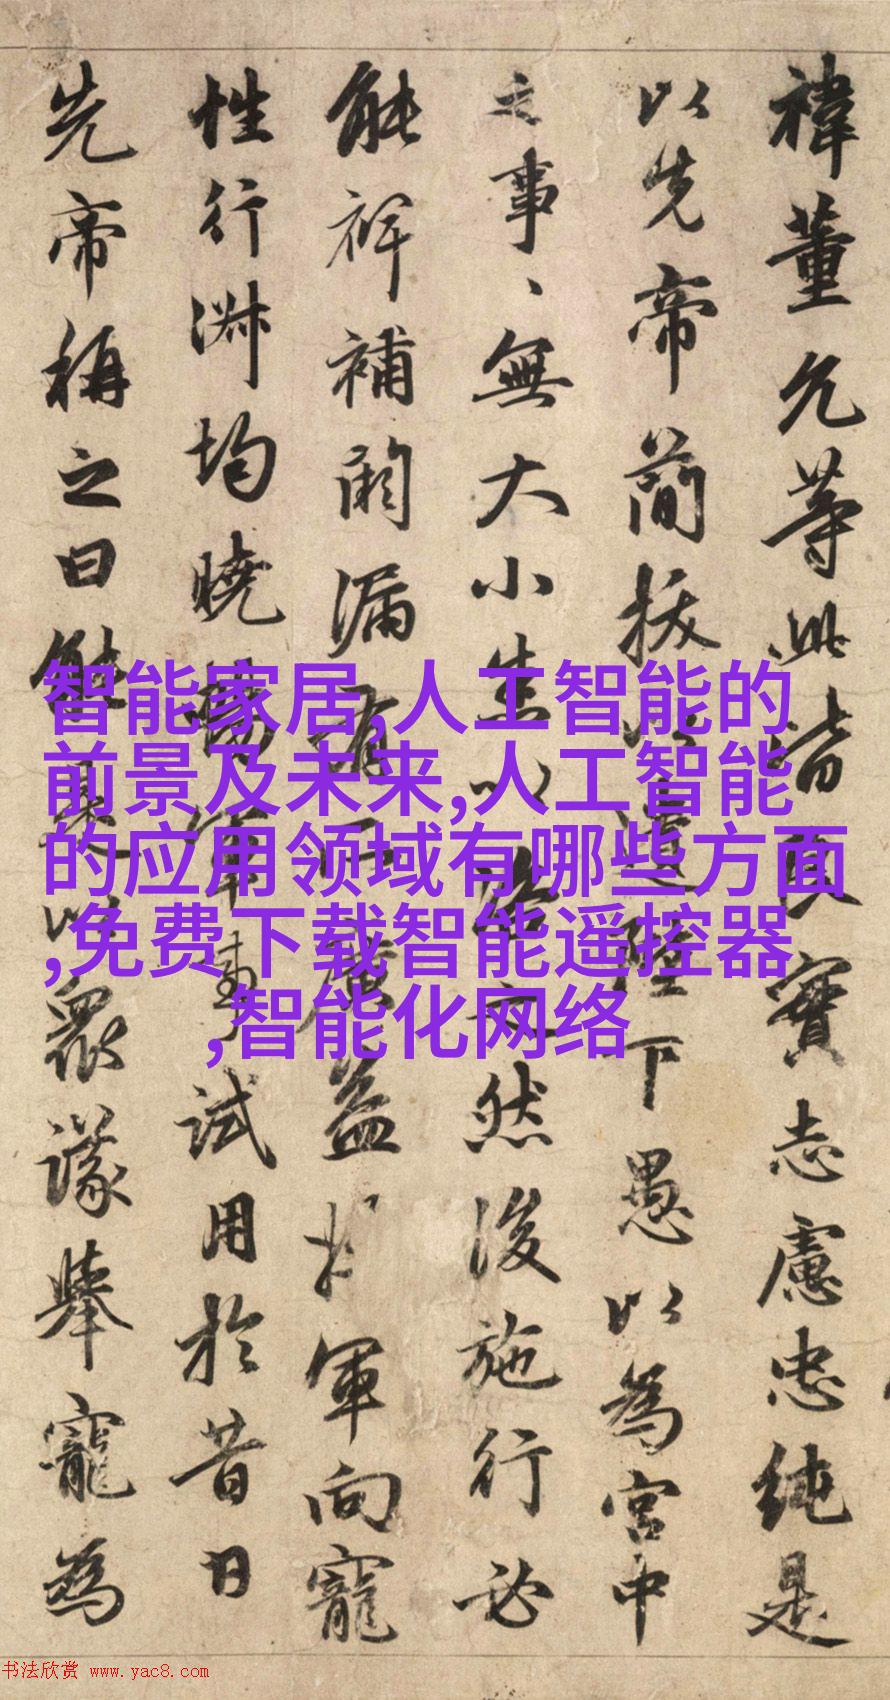 禕董允等此皆良實志慮忠純是
以先帝簡拔以遺陛下愚以為宮中
之事、無大小悉以咨之然後施行必
能裨補闕漏有所廣益将軍向寵
性行淑均曉暢軍事試用於昔日
先帝稱之曰能是以衆議舉寵為
智能家居,人工智能的
前景及未来,人工智能
的应用领域有哪些方面
,免费下载智能遥控器
,智能化网络
书法欣赏 www.yac8.com